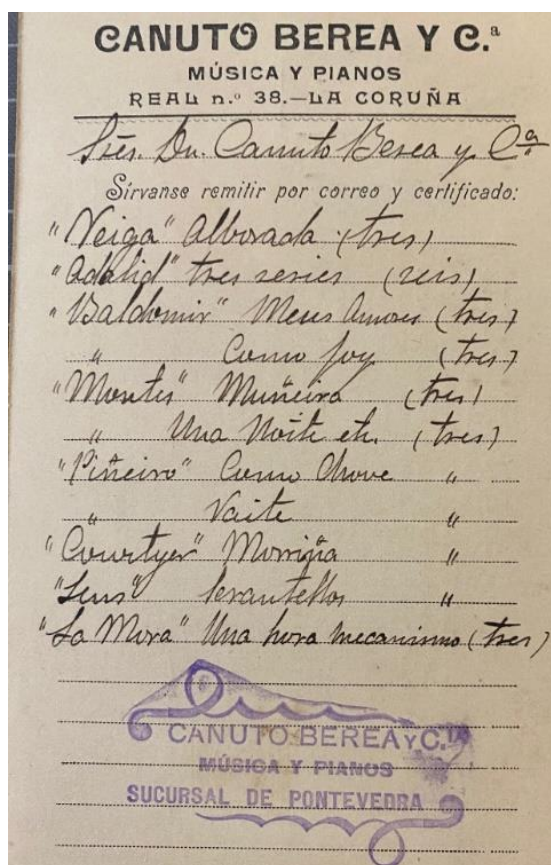 CANUTO BEREA Y C.ª
MÚSICA Y PIANOS
REAL n.º 38.—LA CORUÑA
Sres. Dn. Canuto Berea y Cª
Sírvanse remitir por correo y certificado:
"Veiga" Alborada (tres)
"Adalid" tres series (seis)
"Baldomir" Meus Amores (tres)
" Como foy (tres)
"Montes" Muñeira (tres)
" Una Noite etc. (tres)
"Piñeiro" Como Chove "
" Vaite "
"Courtyer" Morriña "
"Lens" "
"La Mora" Una hora mecanismo (tres)
CANUTO BEREA Y C.IA
MÚSICA Y PIANOS
SUCURSAL DE PONTEVEDRA